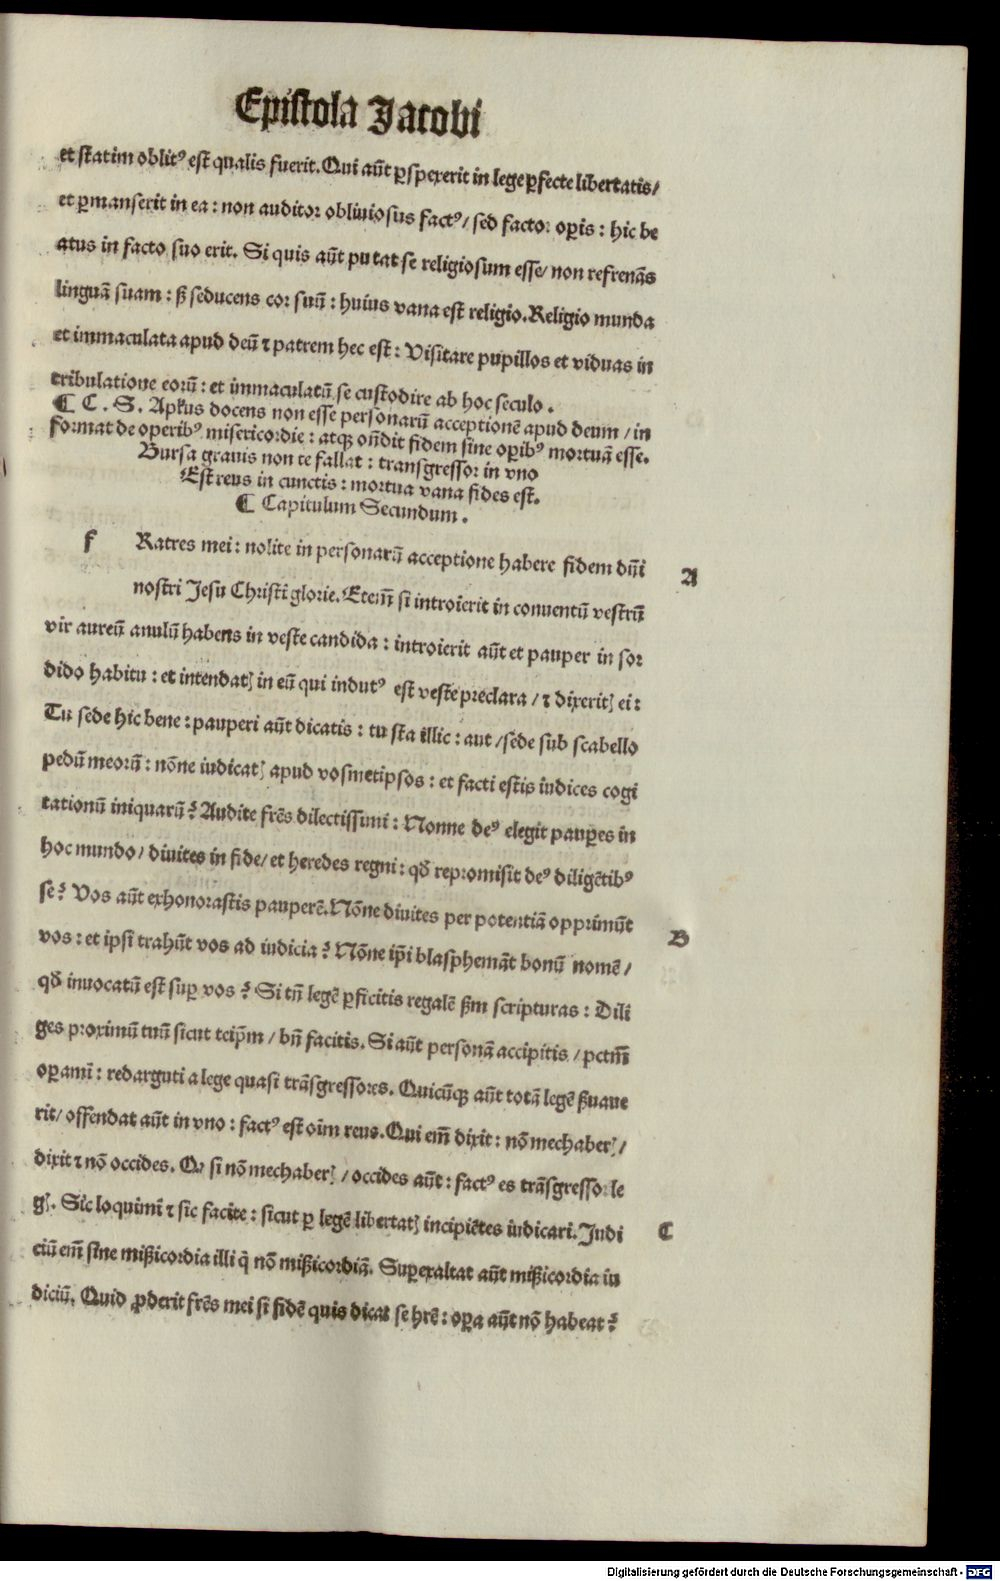 Epistola Jacobi
et statim oblitꝰ est qualis fuerit. Qui aūt ꝑspexerit in lege ꝑfecte libertatis/
et ꝑmanserit in ea: non auditor obliuiosus factꝰ/ sed factor oꝑis: hic be
atus in facto suo erit. Si quis aūt putat se religiosum esse/ non refrenās
linguā suam: sꝫ seducens cor suū: huius vana est religio. Religio munda
et immaculata apud deū ⁊ patrem hec est: Visitare pupillos et viduas in
tribulatione eorū: et immaculatū se custodire ab hoc seculo.
¶ C. S. Apl'us docens non esse personarū acceptionē apud deum/ in
format de operibꝰ misericordie: atqꝫ on̄dit fidem sine oꝑibꝰ mortuā esse.
Bursa grauis non te fallat: transgressor in vno
Est reus in cunctis: mortua vana fides est.
¶ Capitulum Secundum.
f Ratres mei: nolite in personarū acceptione habere fidem dn̄i
A
nostri Jesu Christi glorie. Etem̄ si introierit in conuentū vestrū
vir aureū anulū habens in veste candida: introierit aūt et pauper in sor
dido habitu: et intendatꝭ in eū qui indutꝰ est veste preclara/ ⁊ dixeritꝭ ei:
Tu sede hic bene: pauperi aūt dicatis: tu sta illic: aut/ sede sub scabello
pedū meorū: nōne iudicatꝭ apud vosmetipsos: et facti estis iudices cogi
tationū iniquarū? Audite frēs dilectissimi: Nonne deꝰ elegit pauꝑes in
hoc mundo/ diuites in fide/ et heredes regni: qđ repromisit deꝰ diligētibꝰ
se? Vos aūt exhonorastis pauperē. Nōne diuites per potentiā opprimūt
B
vos: et ipsi trahūt vos ad iudicia? Nōne ip̄i blasphemāt bonū nomē/
qđ inuocatū est suꝑ vos? Si tn̄ legē ꝑficitis regalē ẜm scripturas: Dili
ges proximū tuū sicut teip̄m/ bn̄ facitis. Si aūt personā accipitis/ pctm̄
oꝑamī: redarguti a lege quasi trāsgressores. Quicūqꝫ aūt totā legē ẜuaue
rit/ offendat aūt in vno: factꝰ est oīm reus. Qui em̄ dixit: nō mechaberꝭ/
dixit ⁊ nō occides. Qꝫ si nō mechaberꝭ/ occides aūt: factꝰ es trāsgressor le
gꝭ. Sic loquimī ⁊ sic facite: sicut ꝑ legē libertatꝭ incipiētes iudicari. Judi
C
ciū em̄ sine miẜicordia illi q̄ nō miẜicordiā. Suꝑexaltat aūt miẜicordia iu
diciū. Quid ꝓderit frēs mei si fidē quis dicat se hr̄e: oꝑa aūt nō habeat?
Digitalisierung gefördert durch die Deutsche Forschungsgemeinschaft - DFG